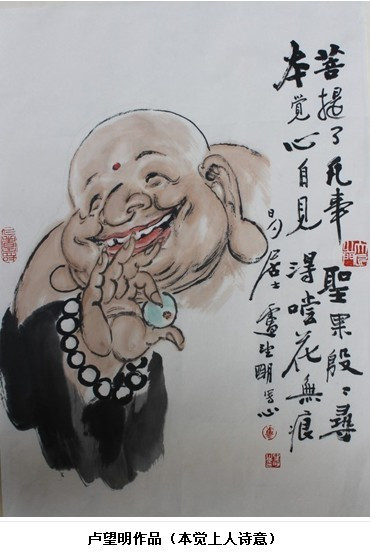 菩提了凡事 聖果殷〻尋
本觉心自見 花無痕
居士 盧望明写心
卢望明作品（本觉上人诗意）